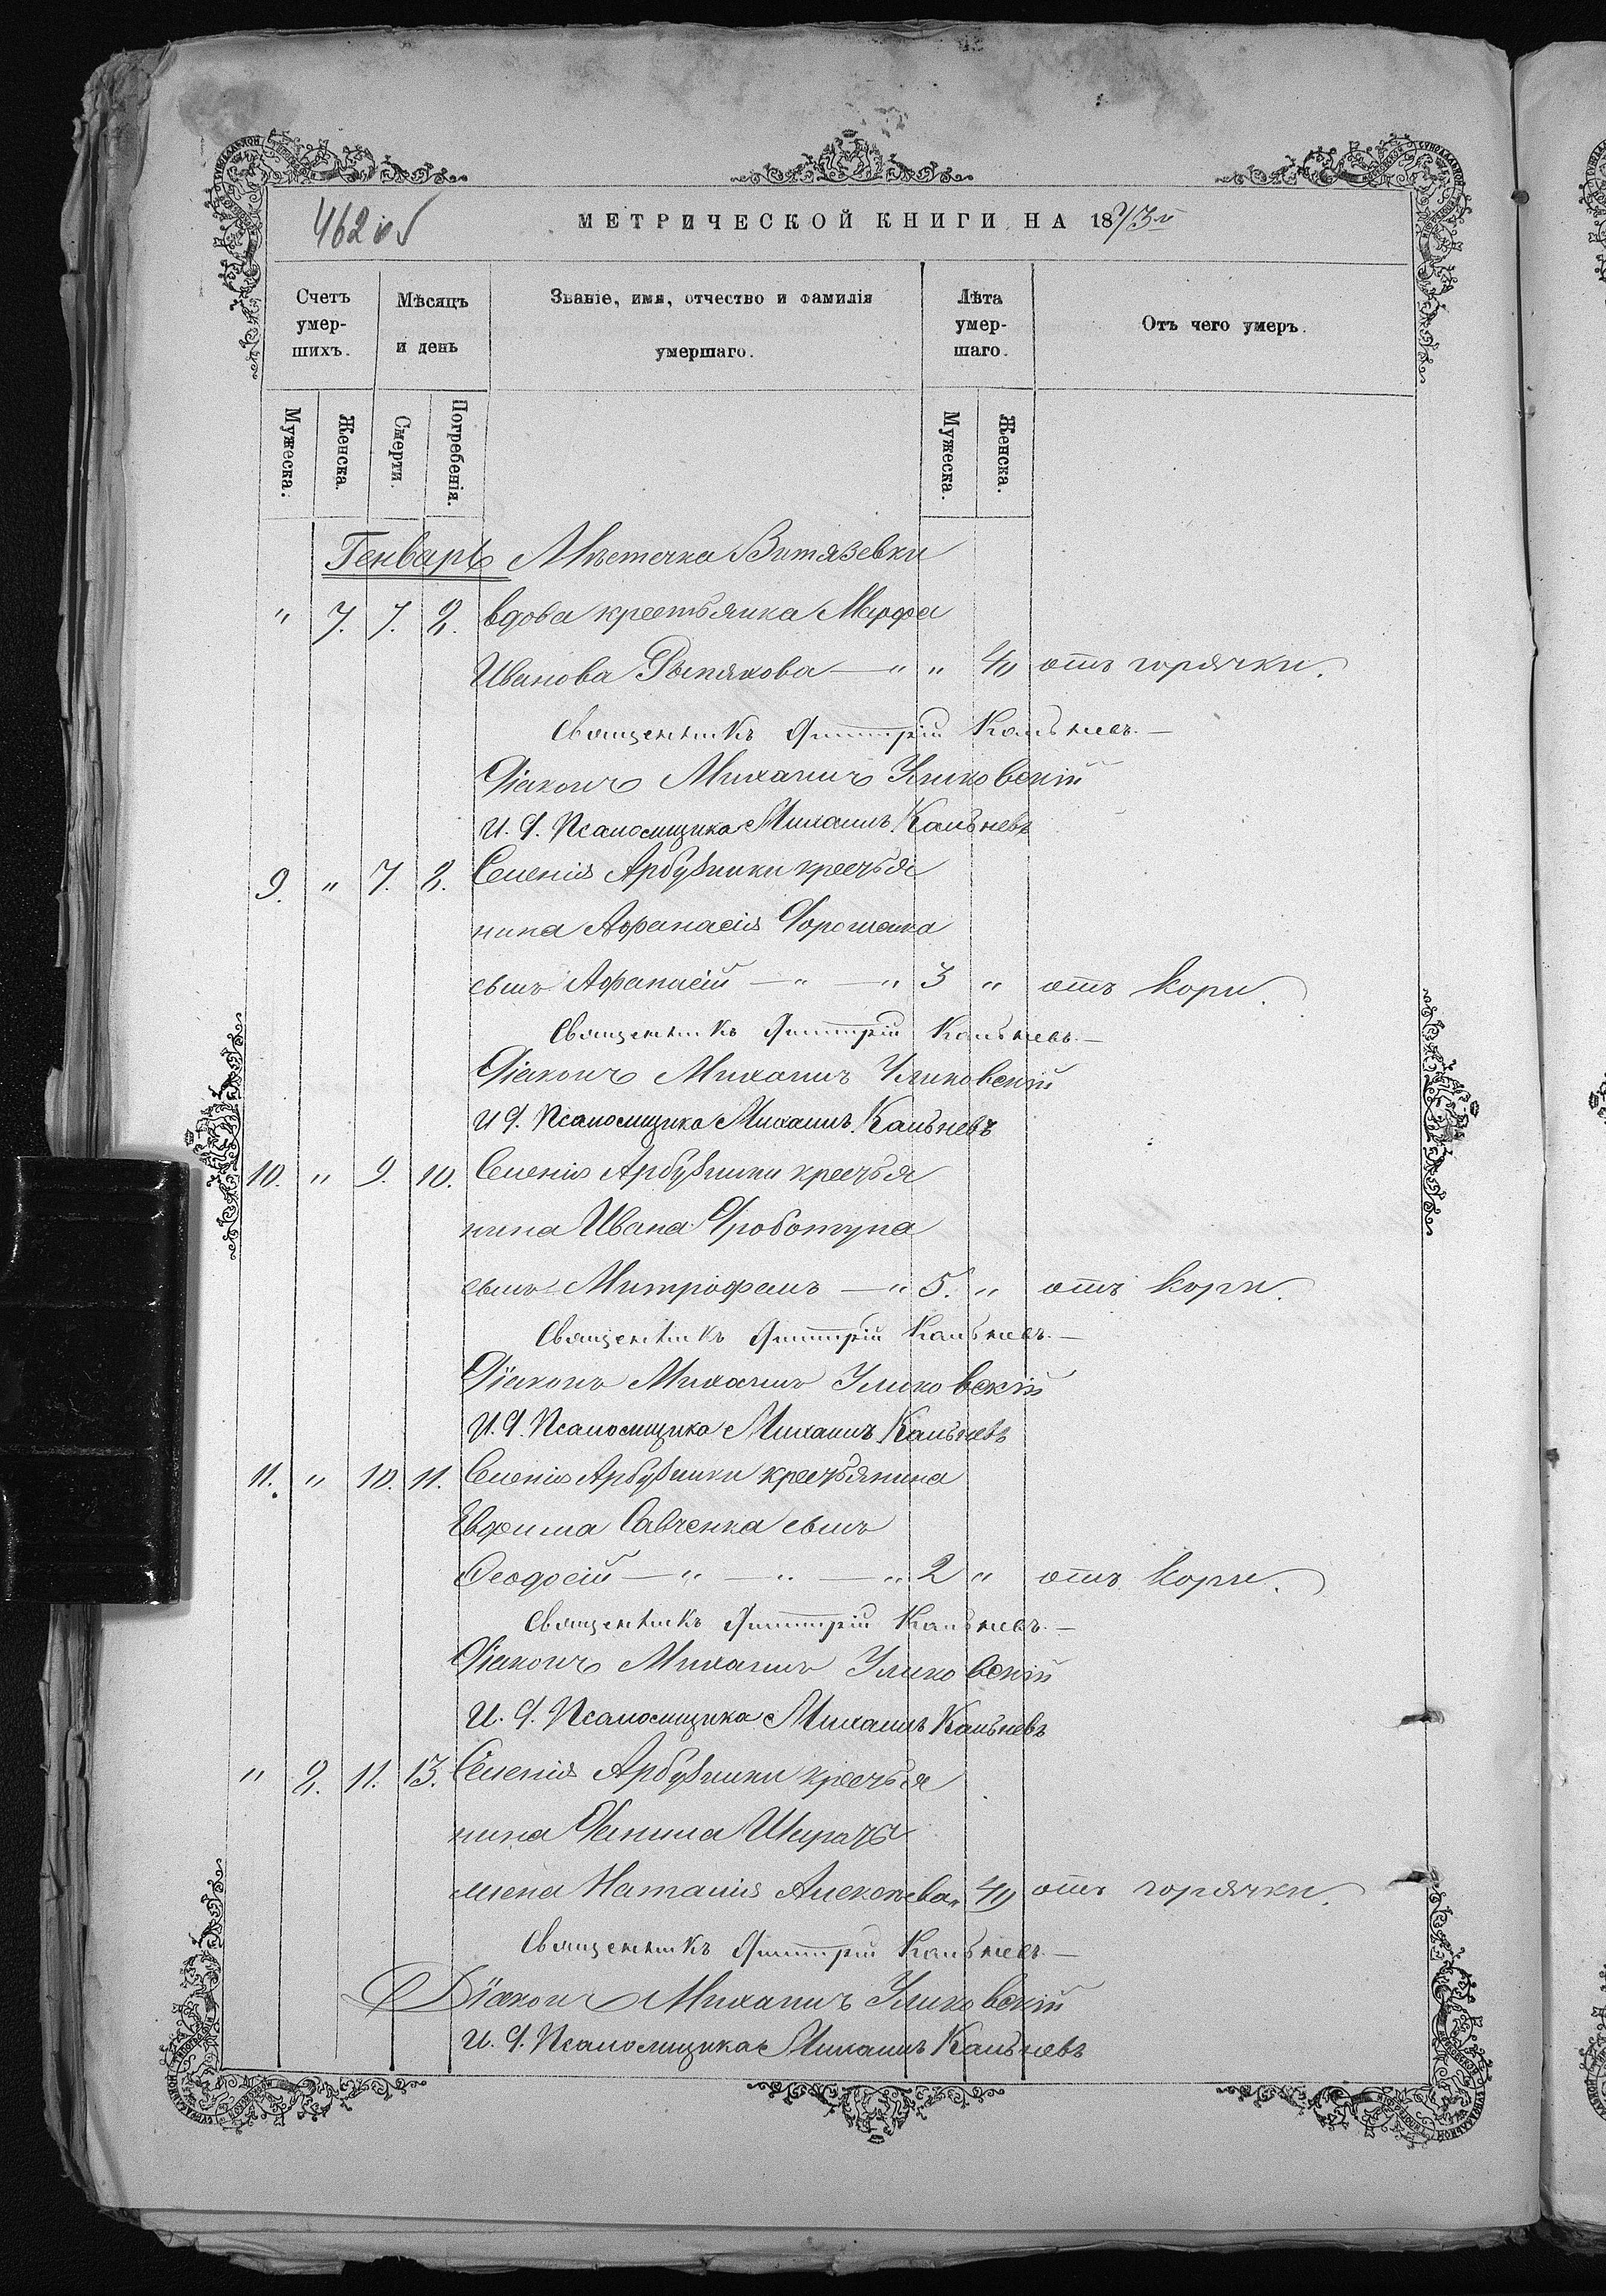 462 об
МЕТРИЧЕСКОЙ КНИГИ НА 1873й
Счетъ умер-шихъ. Мѣсяцъ и день Званіе, имя, отчество и фамилія умершаго. Лѣта умер-шаго. Отъ чего умеръ.
Мужеска. Женска. Смерти. Погребенія. Мужеска. Женска.
Генварь Мѣстечка Витязевки
" 7. 7. 8. вдова крестьянка Марфа
Иванова — " " 40 отъ горячки.
Священникъ Димитрій Кальневъ. —
Діаконъ Михаилъ Улиховскій
И. д. Псаломщика Михаилъ Кальневъ
9. " 7. 8. Селенія Арбузинки крестья
нина Афанасія Дорошенка
сынъ Афанасій — " — " 3 " отъ кори.
Священникъ Димитрій Кальневъ. —
Діаконъ Михаилъ Улиховскій
И д. Псаломщика Михаилъ Кальневъ
10. " 9. 10. Селенія Арбузинки крестья
нина Ивана Дроботуна
сынъ Митрофанъ — " 5. " отъ кори.
Священникъ Димитрій Кальневъ. —
Діаконъ Михаилъ Улиховскій
И. д. Псаломщика Михаилъ Кальневъ
11. " 10. 11. Селенія Арбузинки крестьянина
Евфима Савченка сынъ
Феодосій — " — " — " 2 " отъ кори.
Священникъ Димитрій Кальневъ. —
Діаконъ Михаилъ Улиховскій
И. д. Псаломщика Михаилъ Кальневъ
" 8. 11. 13. Селенія Арбузинки крестья
нина Данила
жена Наталія Алексѣева " 40 отъ горячки.
Священникъ Димитрій Кальневъ. —
Діаконъ Михаилъ Улиховскій
И. д. Псаломщика Михаилъ Кальневъ